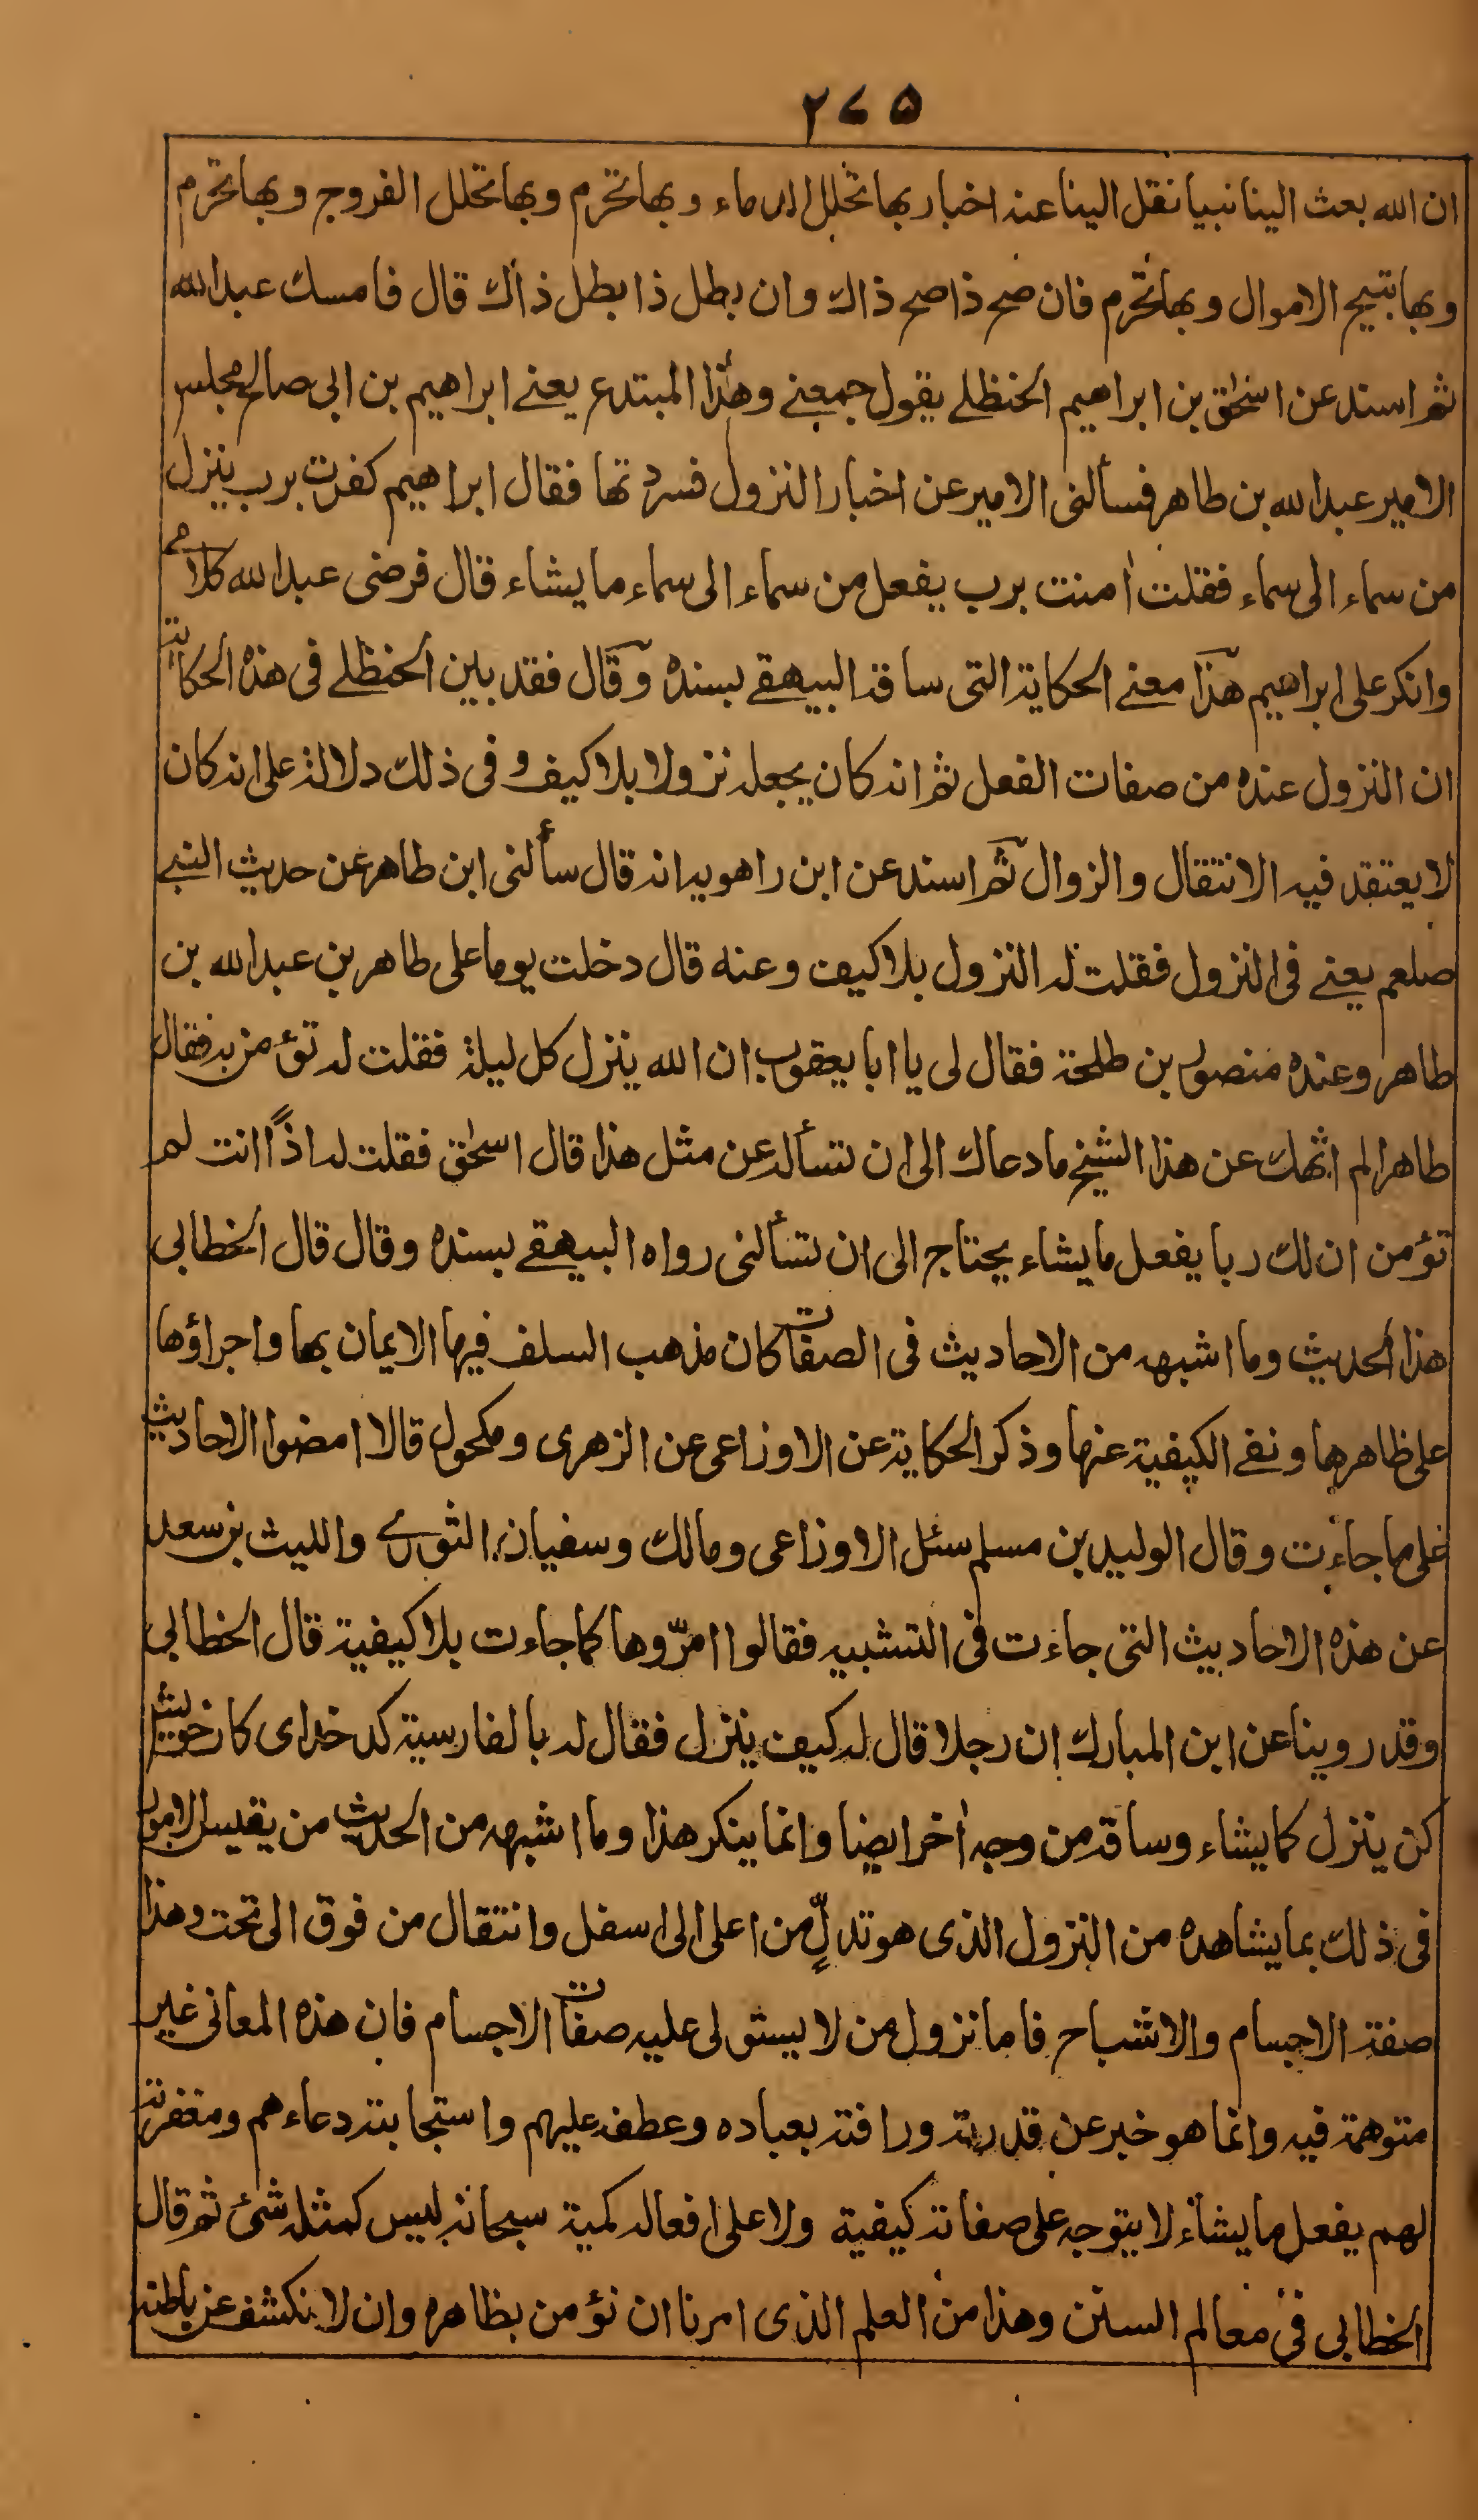 ٢٧٥
ان الله بعث الينا نبيا نقل الينا عنه اخبار بها تحلل الدماء وبها تحرم وبها تحلل الفروج وبها تحرم
وبها تبيح الاموال وبها تحرم فان صح ذا صح ذاك وان بطل ذا بطل ذاك قال فامسك عبد الله
ثم اسند عن اسحٰق بن ابراهيم الحنظلے يقول جمعنے وهذا المبتدع يعنے ابراهيم بن ابى صالح مجلس
الامير عبد الله بن طاهر فسألنى الامير عن اخبار النزول فسردتها فقال ابراهيم كفرت برب ينزل
من سماء الى سماء فقلت اٰمنت برب يفعل من سماء الى سماء ما يشاء قال فرضى عبد الله كلامى
وانكر على ابراهيم هذا معنے الحكاية التى ساقه البيهقے بسنده وقال فقد بين الحنظلے فى هذه الحكاية
ان النزول عنده من صفات الفعل ثم انه كان يجعله نزولا بلا كيف و فى ذلك دلالة على انه كان
لا يعتقد فيه الانتقال والزوال ثم اسند عن ابن راهويه انه قال سألنى ابن طاهر عن حديث النبے
صلعم يعنے فى النزول فقلت له النزول بلا كيف وعنه قال دخلت يوما على طاهر بن عبد الله بن
طاهر وعنده منصور بن طلحة فقال لى يا ابا يعقوب ان الله ينزل كل ليلة فقلت له تؤمن به فقال
طاهر الم انهك عن هذا الشيخ ما دعاك الى ان تسأله عن مثل هذا قال اسحٰق فقلت له اذًا انت لم
تؤمن ان لك ربا يفعل ما يشاء يحتاج الى ان تسألنى رواه البيهقے بسنده وقال قال الخطابى
هذا الحديث وما اشبهه من الاحاديث فى الصفات كان مذهب السلف فيها الايمان بها واجراؤها
على ظاهرها ونفے الكيفية عنها وذكر الحكاية عن الاوزاعى عن الزهرى ومكحول قالا امضوا الاحاديث
على ما جاءت وقال الوليد بن مسلم سئل الاوزاعى ومالك وسفيان الثورے والليث بن سعد
عن هذه الاحاديث التى جاءت فى التشبيه فقالوا امرّوها كما جاءت بلا كيفية قال الخطابى
وقد روينا عن ابن المبارك ان رجلا قال له كيف ينزل فقال له بالفارسية كد خداى كار خويش
كن ينزل كما يشاء وساقه من وجه اٰخر ايضا وانما ينكر هذا وما اشبهه من الحديث من يقيس الامور
فى ذلك بما يشاهده من النزول الذى هو تدلٍّ من اعلى الى اسفل وانتقال من فوق الى تحت وهذا
صفة الاجسام والاشباح فاما نزول من لا يستولى عليه صفات الاجسام فان هذه المعانى غير
متوهمة فيه وانما هو خبر عن قدرته ورافته بعباده وعطفه عليهم واستجابته دعاءهم ومغفرته
لهم يفعل ما يشاء لا يتوجه على صفاته كيفية ولا على افعاله كمية سبحانه ليس كمثله شئ ثم قال
الخطابى فى معالم السنن وهذا من العلم الذى امرنا ان نؤمن بظاهره وان لا نكشف عن باطنه